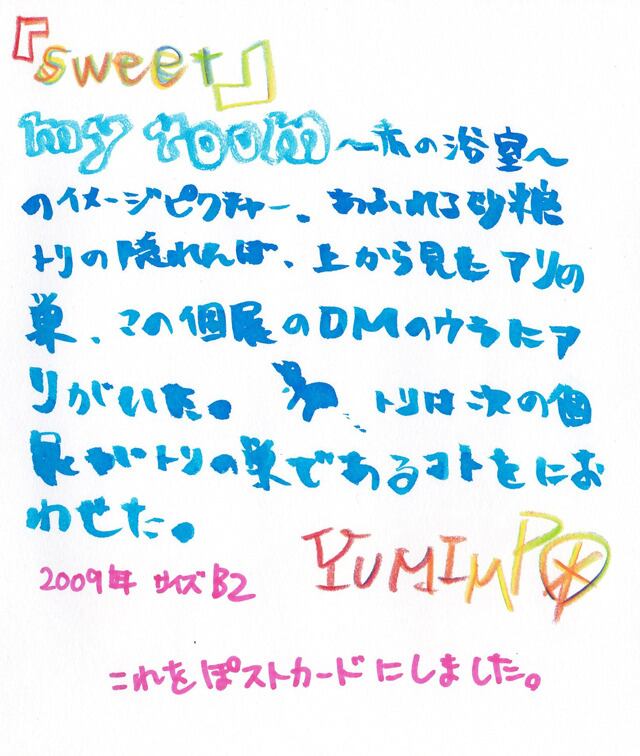 『sweet』
my room 〜木の浴室〜
のイメージピクチャー、あふれる砂糖
トリの隠れんぼ、上から見たアリの
巣、この個展のDMのウラにア
リがいた。 トリは次の個
展がトリの巣であるコトをにお
わせた。
YUMIMPO
2009年 サイズB2
これをぽストカードにしました。